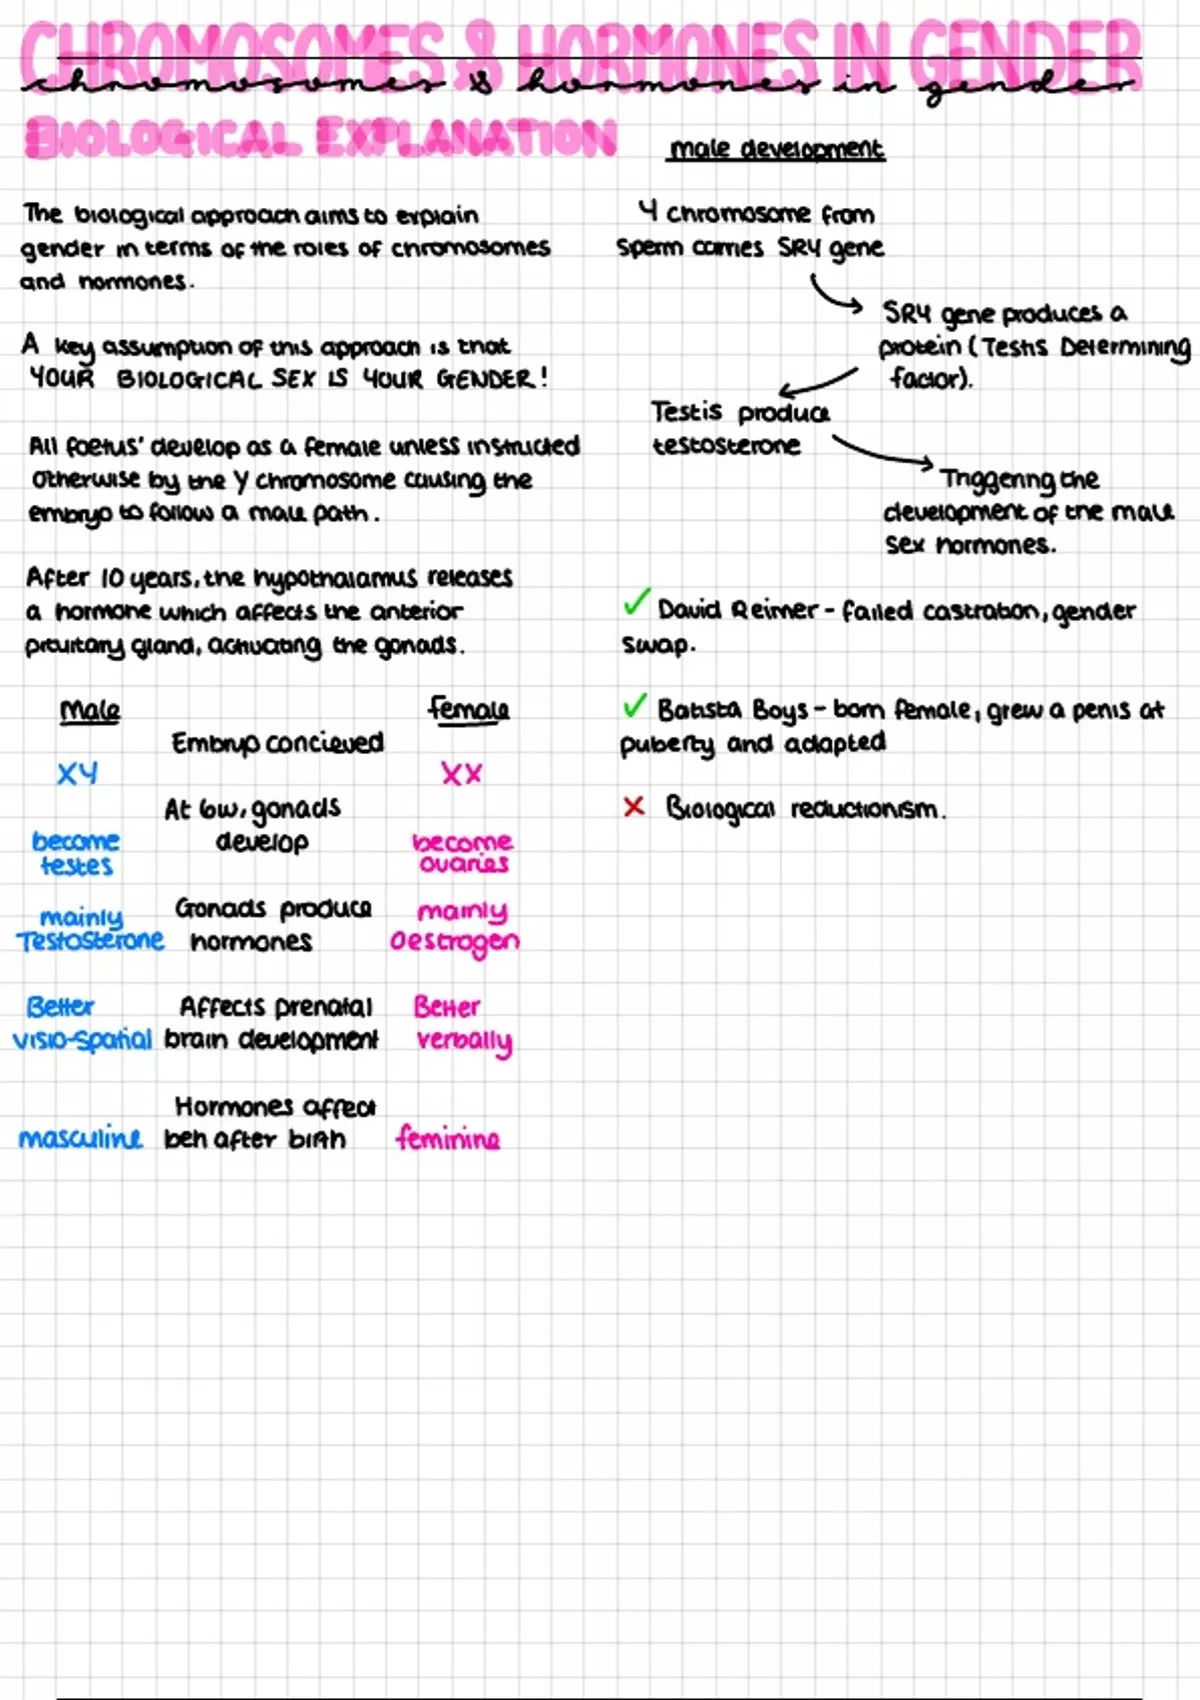 CHROMOSOMES & HORMONES IN GENDER
chromosomes & hormones in gender
BIOLOGICAL EXPLANATION
The biological approach aims to explain
gender in terms of the roles of chromosomes
and hormones.
A key assumption of this approach is that
YOUR BIOLOGICAL SEX IS YOUR GENDER!
All foetus' develop as a female unless instructed
otherwise by the Y chromosome causing the
embryo to follow a male path.
After 10 years, the hypothalamus releases
a hormone which affects the anterior
pituitary gland, activating the gonads.
Male
female
Embryo concieved
XY
XX
At 6w, gonads
become develop become
testes ovaries
mainly Gonads produce mainly
Testosterone hormones Oestrogen
Better Affects prenatal Better
visio-spatial brain development verbally
Hormones affect
masculine beh after birth feminine
male development
Y chromosome from
sperm carries SRY gene
SRY gene produces a
protein (Testis Determining
factor).
Testis produce
testosterone
Triggering the
development of the male
sex hormones.
✓ David Reimer - failed castration, gender
swap.
✓ Batista Boys - born female, grew a penis at
puberty and adapted
✗ Biological reductionism.